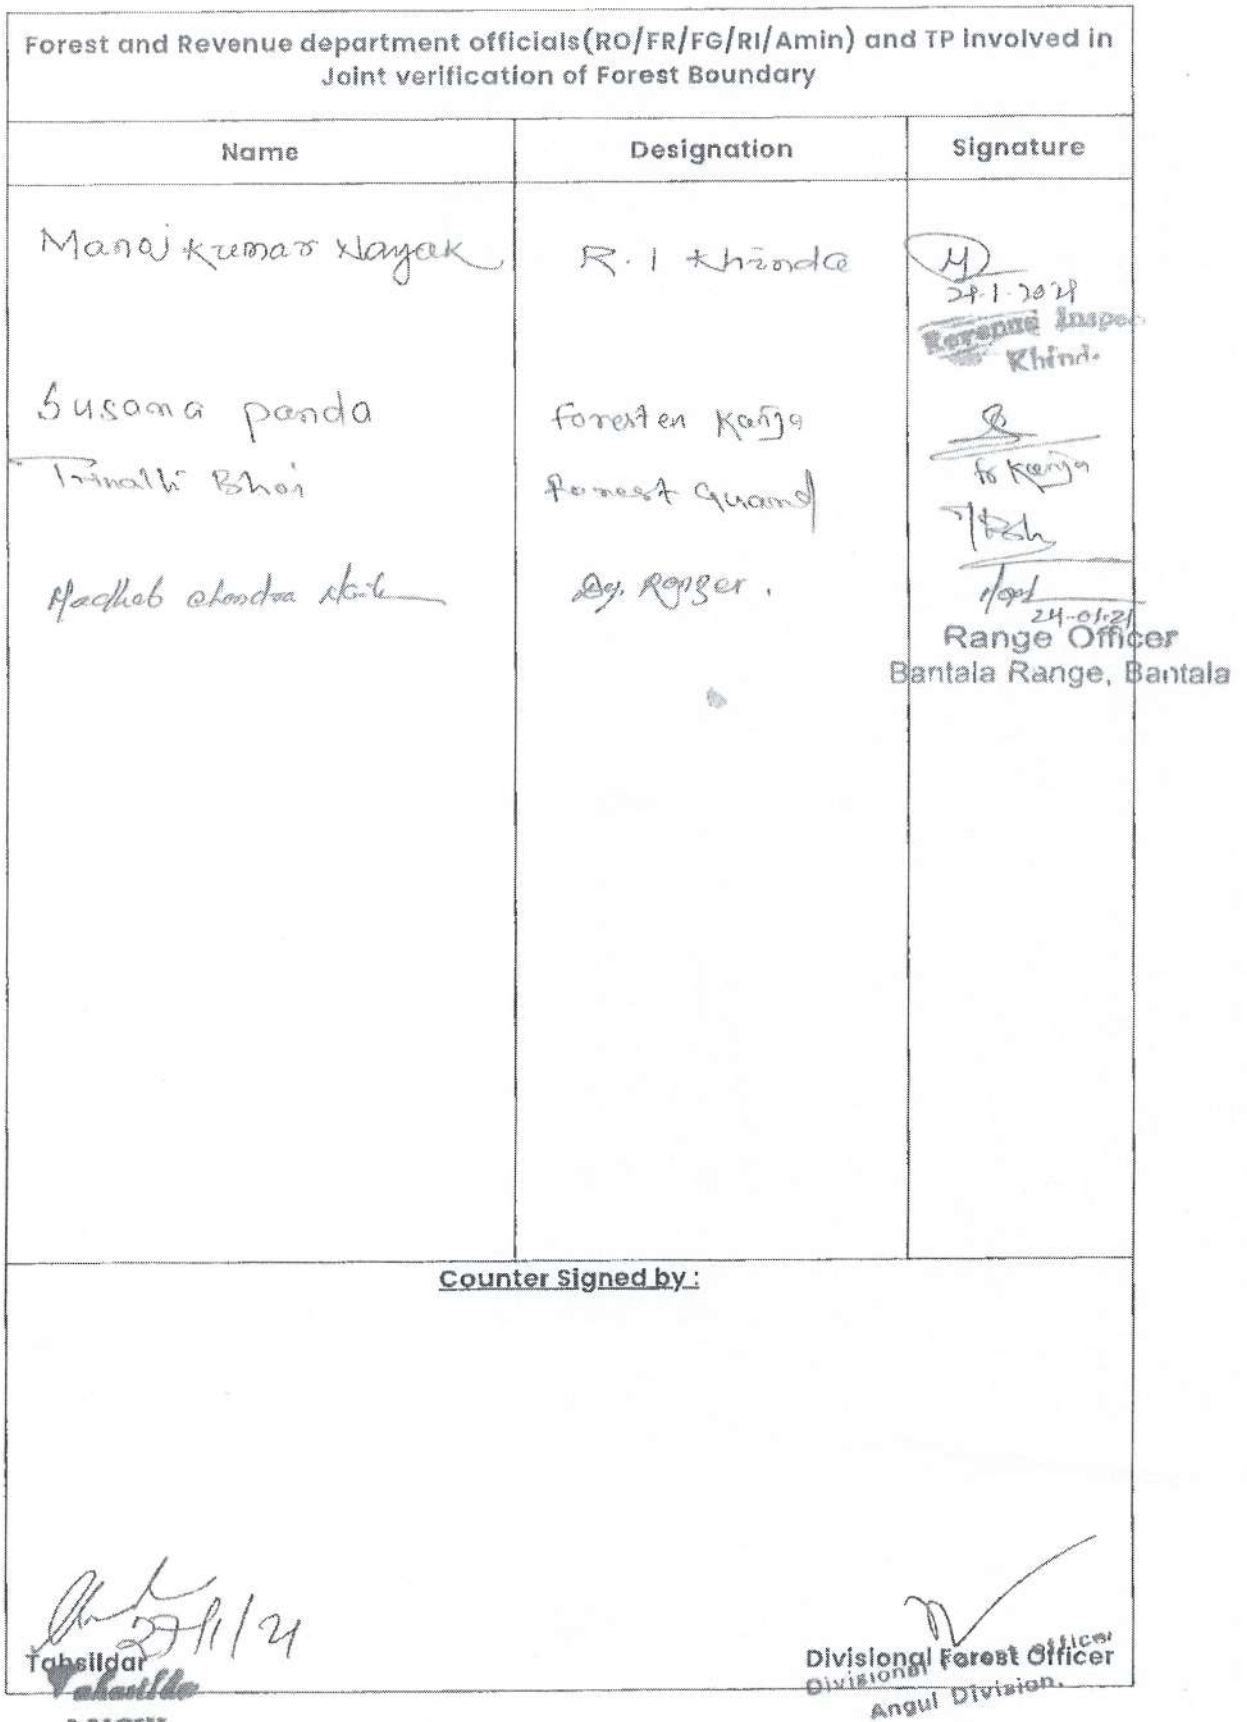 Forest and Revenue department officials(RO/FR/FG/RI/Amin) and TP involved in
Joint verification of Forest Boundary
Name Designation Signature
Manoj Kumar Nayak R.I Khinda
Revenue Inspec
Khind
Susama panda Forester Kanja
fr Kanja
Trinath Bhoi Forest Guard
Madhab chandra Naik Dy. Ranger.
24-01-21
Range Officer
Bantala Range, Bantala
Counter Signed by :
27/1/21
Tahsildar
Tahasilda
Divisional Forest Officer
Divisional officer
Angul Division.